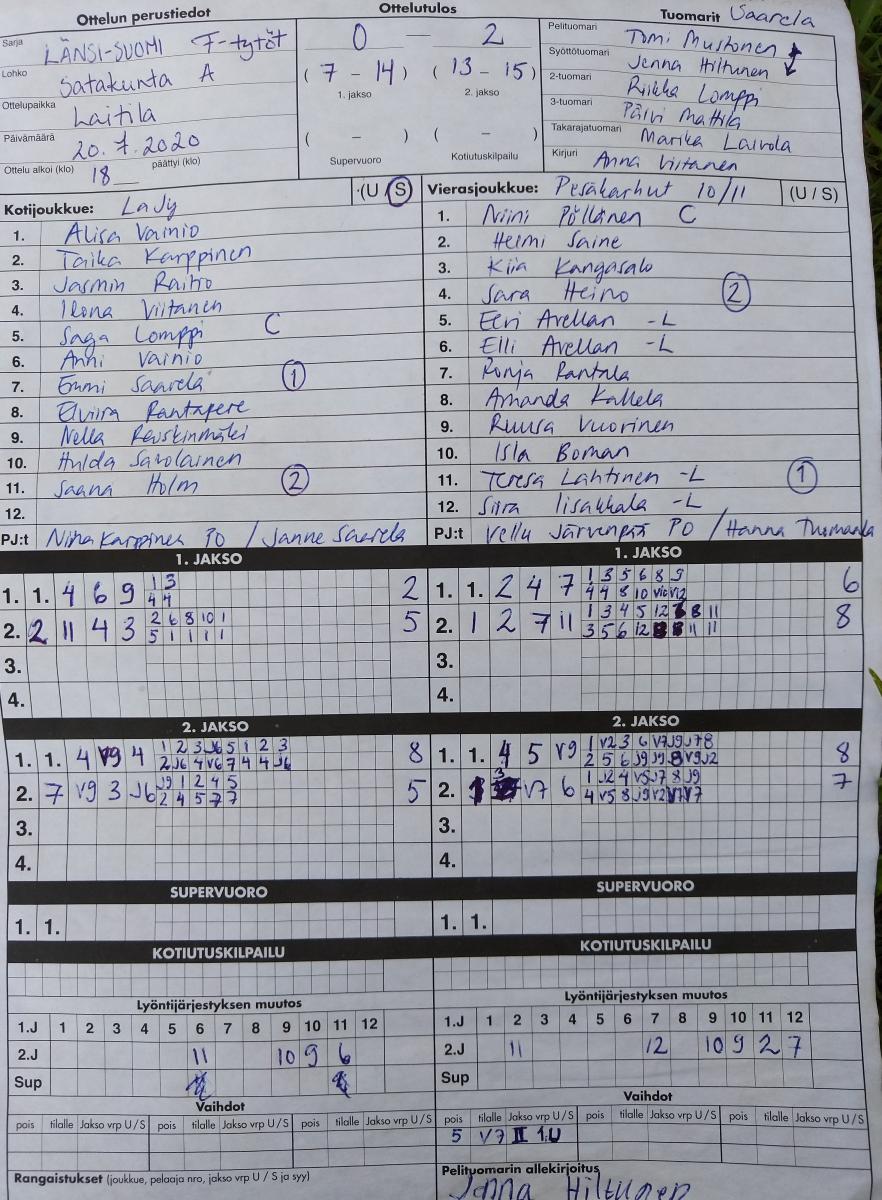 Ottelun perustiedot
Sarja LÄNSI-SUOMI F-tytöt
Lohko Satakunta A
Ottelupaikka Laitila
Päivämäärä 20.7.2020
Ottelu alkoi (klo) 18 päättyi (klo)
Ottelutulos
0 — 2
(7 - 14) (13 - 15)
1. jakso 2. jakso
( - ) ( - )
Supervuoro Kotiutuskilpailu
Tuomarit Saarela
Pelituomari Tomi Mustonen
Syöttötuomari Jenna Hiltunen
2-tuomari Riikka Lomppi
3-tuomari Päivi Mattila
Takarajatuomari Marika Laivola
Kirjuri Anna Virtanen
Kotijoukkue: LaJy (U S)
1. Alisa Vainio
2. Taika Karppinen
3. Jasmin Raitio
4. Ilona Viitanen
5. Saga Lomppi C
6. Anni Vainio
7. Emmi Saarela 1
8. Elviira Rantapere
9. Nella
10. Hulda Savolainen
11. Saana Holm 2
12.
PJ:t Niina Karppinen PO / Janne Saarela
Vierasjoukkue: Pesäkarhut 10/11 (U / S)
1. Niini Pöllänen C
2. Helmi Saine
3. Kiia Kangasalo
4. Sara Heino 2
5. Eevi Avellan -L
6. Elli Avellan -L
7. Ronja Rantala
8. Amanda Kallela
9. Ruusa Vuorinen
10. Isla Boman
11. Teresa Lahtinen -L 1
12. Siira Iisakkala -L
PJ:t Vellu Järvenpää PO / Hanna
1. JAKSO
1. 1. 4 6 9 1 3 2
4 4
2. 2 11 4 3 2 6 8 10 1 5
5 1 1 1 1
3.
4.
1. JAKSO
1. 1. 2 4 7 1 3 5 6 8 9 6
4 4 8 10 V10 V12
2. 1 2 7 11 1 3 4 5 12 8 11 8
3 5 6 12 11 11
3.
4.
2. JAKSO
1. 1. 4 V9 4 1 2 3 J6 5 1 2 3 8
2 J6 4 V6 7 4 4 J6
2. 7 V9 3 J6 J9 1 2 4 5 5
2 4 5 7 7
3.
4.
2. JAKSO
1. 1. 4 5 V9 1 V2 3 6 V7 J9 J7 8 8
2 5 6 J9 J9 8 V9 J2
2. 3 V7 6 1 J2 4 V5 J7 8 J9 7
4 V5 8 J9 V2 V7 V7
3.
4.
SUPERVUORO
1. 1.
SUPERVUORO
1. 1.
KOTIUTUSKILPAILU
KOTIUTUSKILPAILU
Lyöntijärjestyksen muutos
1.J 1 2 3 4 5 6 7 8 9 10 11 12
2.J 11 10 9 6
Sup
Lyöntijärjestyksen muutos
1.J 1 2 3 4 5 6 7 8 9 10 11 12
2.J 11 12 10 9 2 7
Sup
Vaihdot
pois tilalle Jakso vrp U / S pois tilalle Jakso vrp U / S pois tilalle Jakso vrp U / S
Vaihdot
pois tilalle Jakso vrp U / S pois tilalle Jakso vrp U / S pois tilalle Jakso vrp U / S
5 V7 II 1.U
Rangaistukset (joukkue, pelaaja nro, jakso vrp U / S ja syy)
Pelituomarin allekirjoitus
Jenna Hiltunen